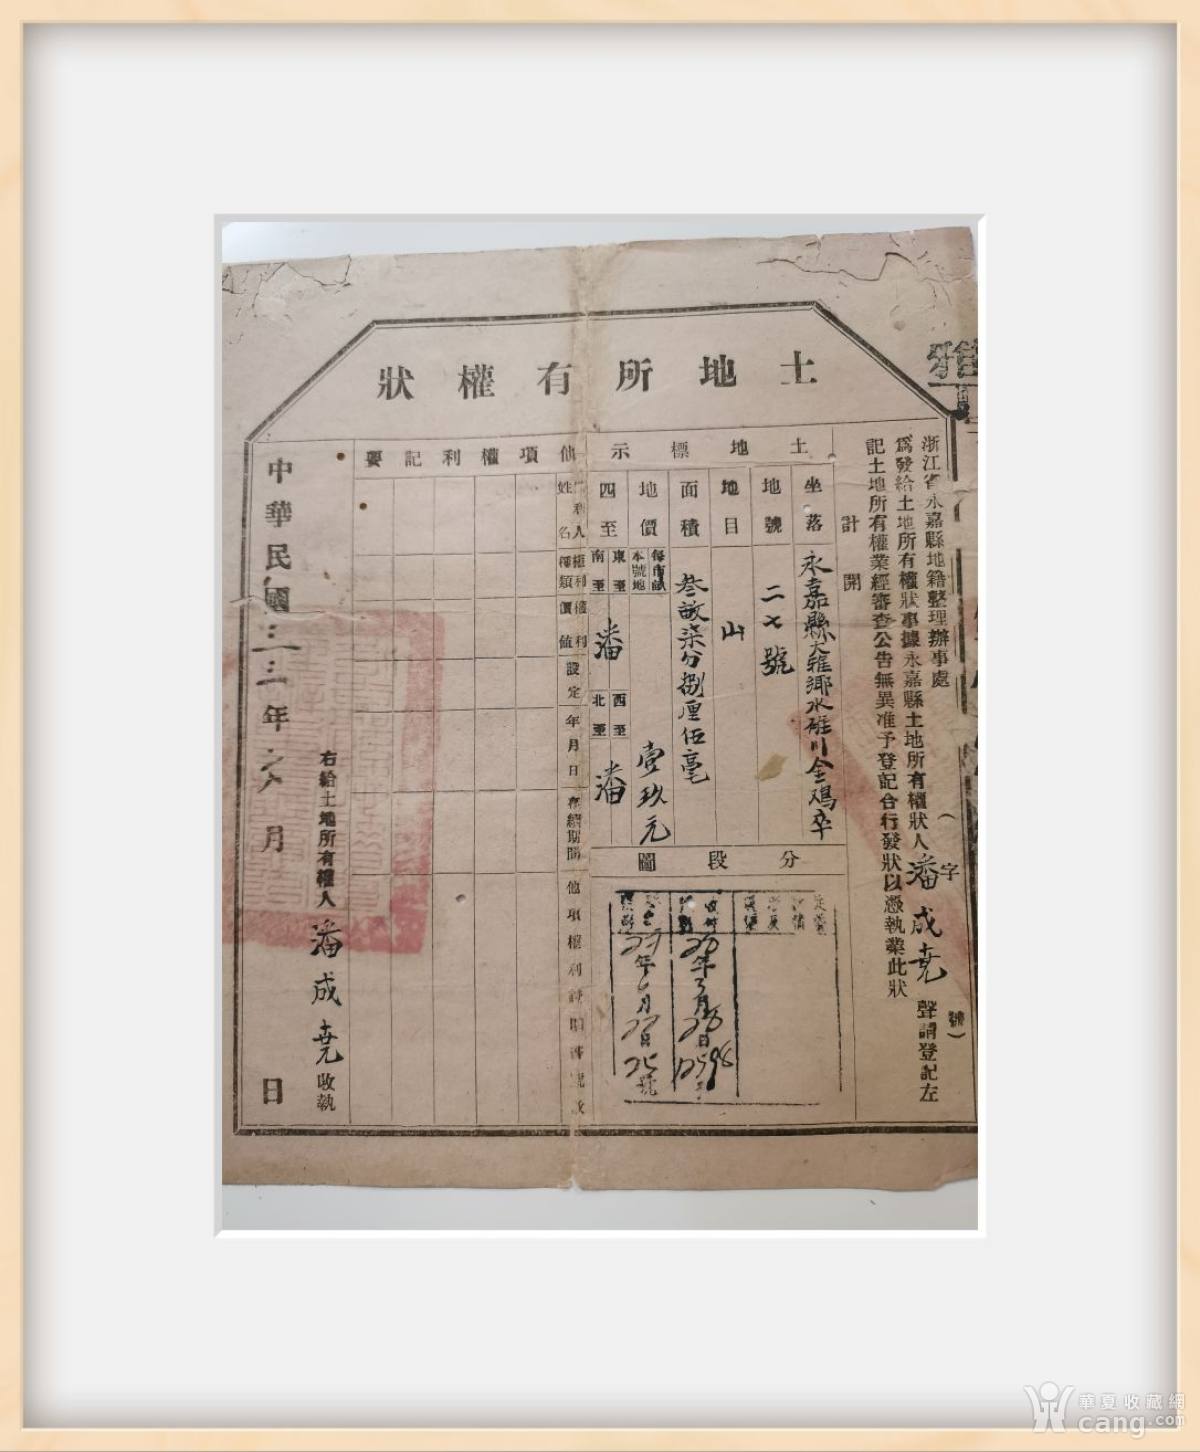 土地所有權狀
浙江省永嘉縣地籍整理辦事處
爲發給土地所有權狀事據永嘉縣土地所有權狀人潘成尭聲請登記左
記土地所有權業經審查公告無異准予登記合行發狀以憑執業此狀
（字
號）
計開
土地標示
坐落
永嘉縣大雅鄉水碓川金鸡
地號
二七號
地目
山
面積
叁畝柒分捌厘伍毫
地價
每市畝
本號地
壹玖元
四至
東至
南至
潘
西至
北至
潘
分段圖
年
月
日
號
年
月
日
他項權利記要
權利人姓名
權利種類
權利價值
設定年月日
存續期間
他項權利證明書號數
右給土地所有權人潘成尭收執
中華民國三三年六月日
華夏收藏網
cang.com